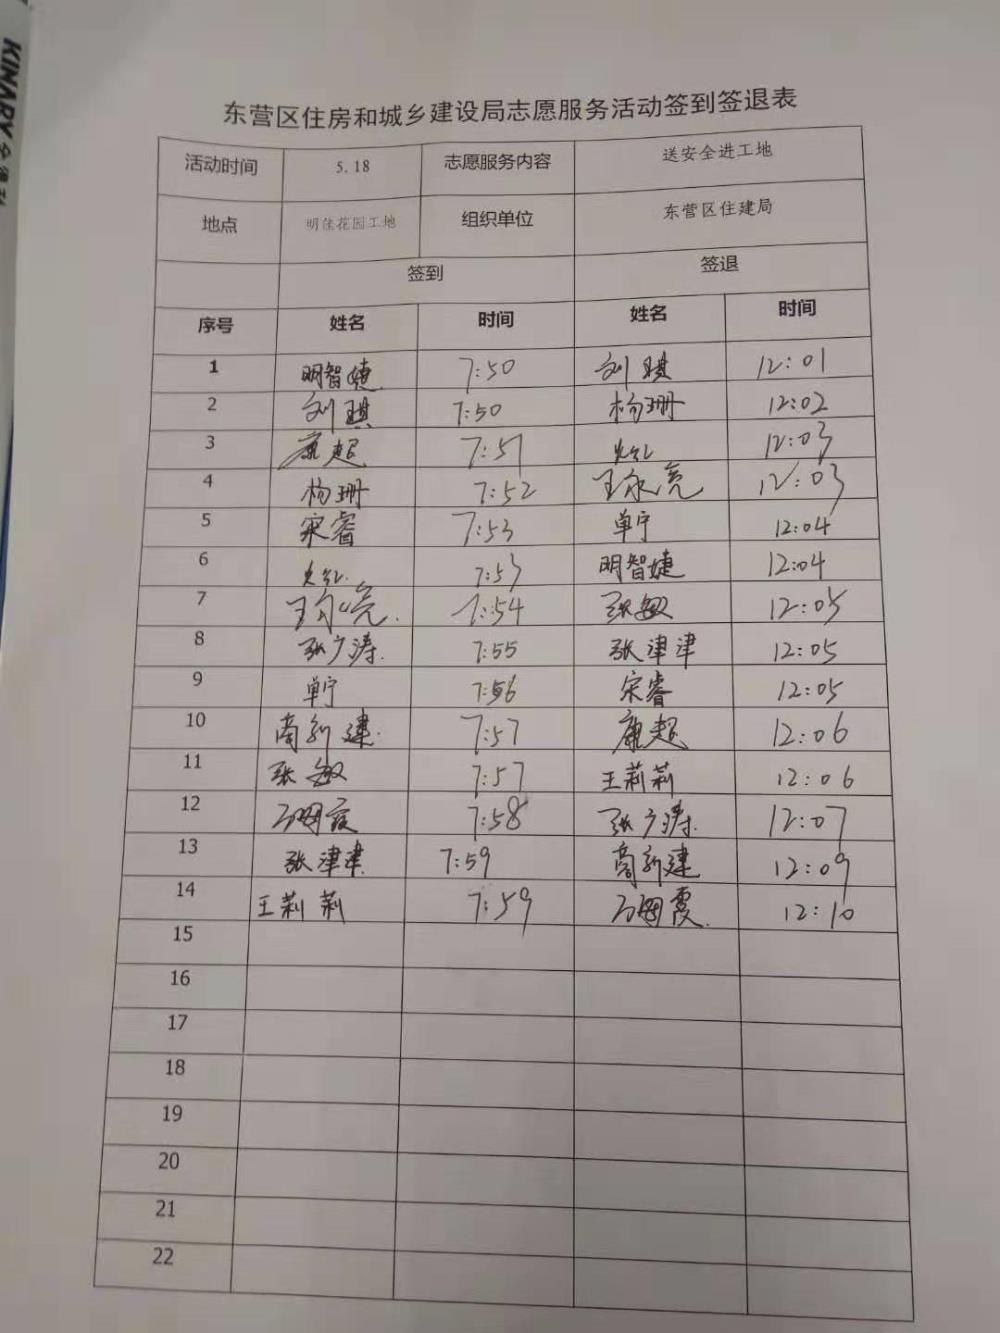 KINARY
东营区住房和城乡建设局志愿服务活动签到签退表
活动时间 5.18 志愿服务内容 送安全进工地
地点 明佳花园工地 组织单位 东营区住建局
签到 签退
序号 姓名 时间 姓名 时间
1 明智婕 7:50 刘琪 12:01
2 刘琪 7:50 杨珊 12:02
3 康超 7:51 12:03
4 杨珊 7:52 12:03
5 宋睿 7:53 单宁 12:04
6 7:53 明智婕 12:04
7 7:54 张敏 12:05
8 张广涛 7:55 张津津 12:05
9 单宁 7:56 宋睿 12:05
10 商新建 7:57 康超 12:06
11 张敏 7:57 王莉莉 12:06
12 7:58 张广涛 12:07
13 张津津 7:59 商新建 12:09
14 王莉莉 7:59 12:10
15
16
17
18
19
20
21
22